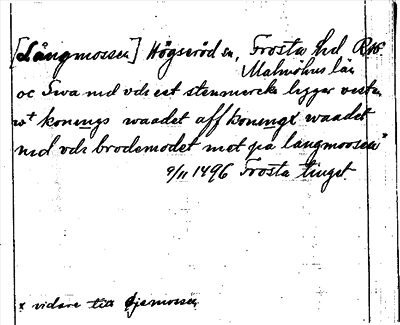 [Långmossen] Högseröd sn, Frosta hd RAP.
Malmöhus län
oc Siva nid vdi eet stenmercke ligger vesten
wt konings waadet aff konings waadet
nid vdi brodemodet mot på langmoosen"
9/11 1496 Frosta tinget.
x vidare till Öjemossen